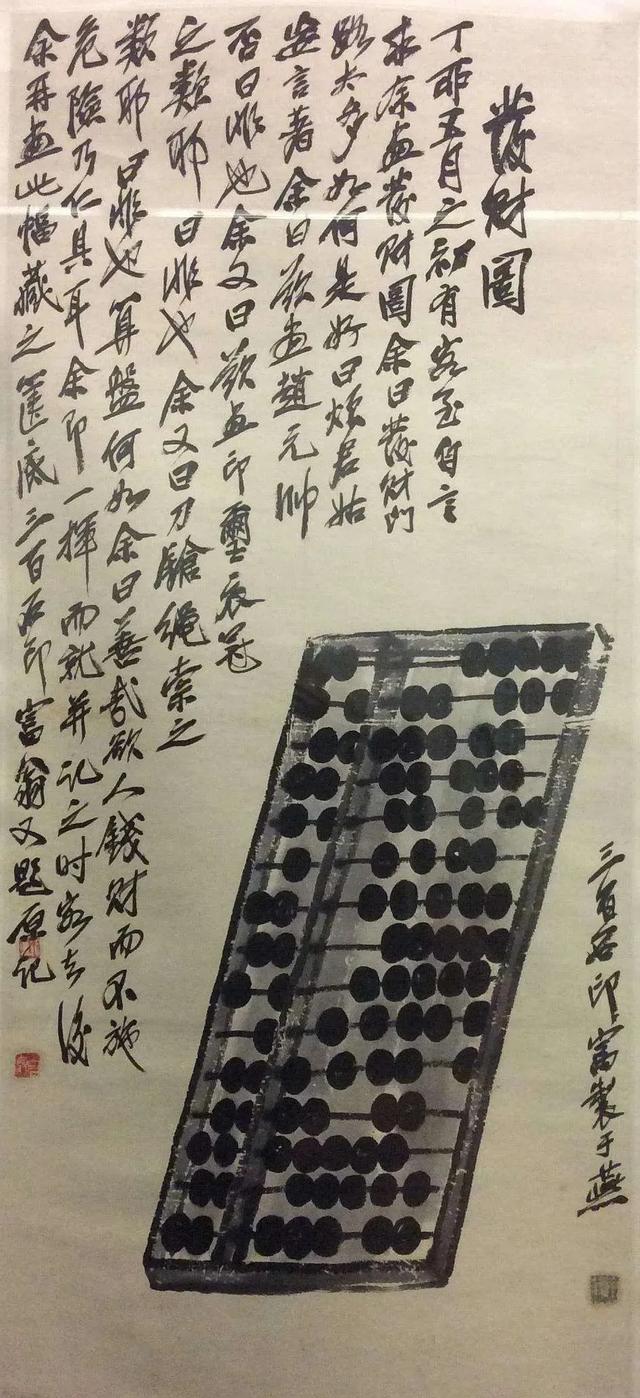 發財圖
丁卯五月之初有客至自言
求余畫發財圖余曰發財門
路太多如何是好曰煩君姑
妄言著余曰欲畫趙元帥
否曰非也余又曰欲畫印璽衣冠
之類耶曰非也余又曰刀鎗繩索之
類耶曰非也算盤何如余曰善哉欲人錢財而不施
危險乃仁具耳余即一揮而就并記之时客去後
余再畫此幅藏之篋底三百石印富翁又題原記
三百石印富製于燕